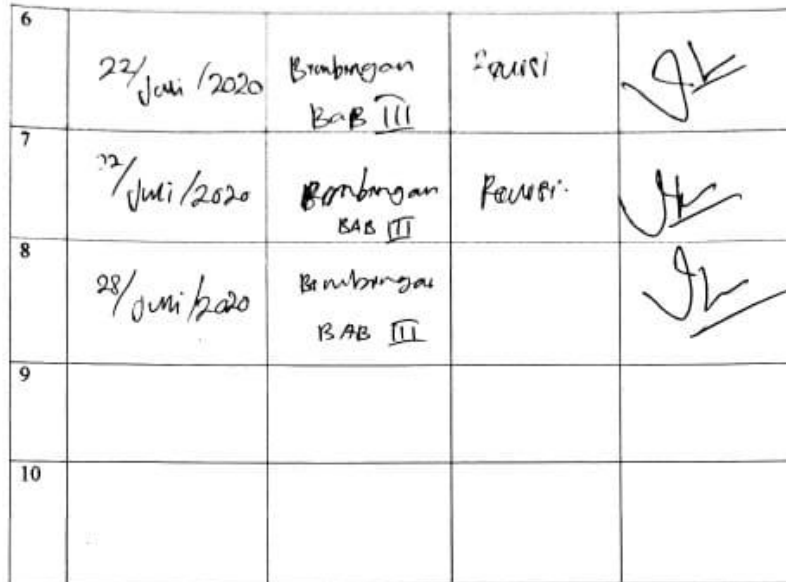 6
22/Juli/2020 Bimbingan Revisi
BAB III
7
22/Juli/2020 Bimbingan Revisi.
BAB III
8
28/Juni/2020 Bimbingan
BAB III
9
10